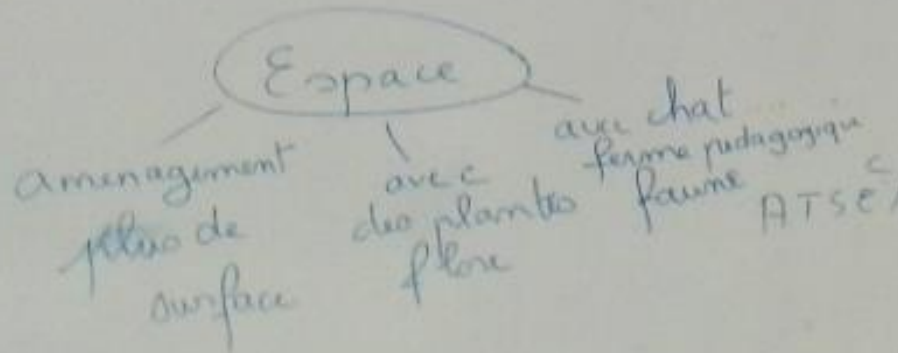 Espace
aménagement
plus de
surface
avec
des plantes
flore
avec chat
ferme pédagogique
faune
ATSE